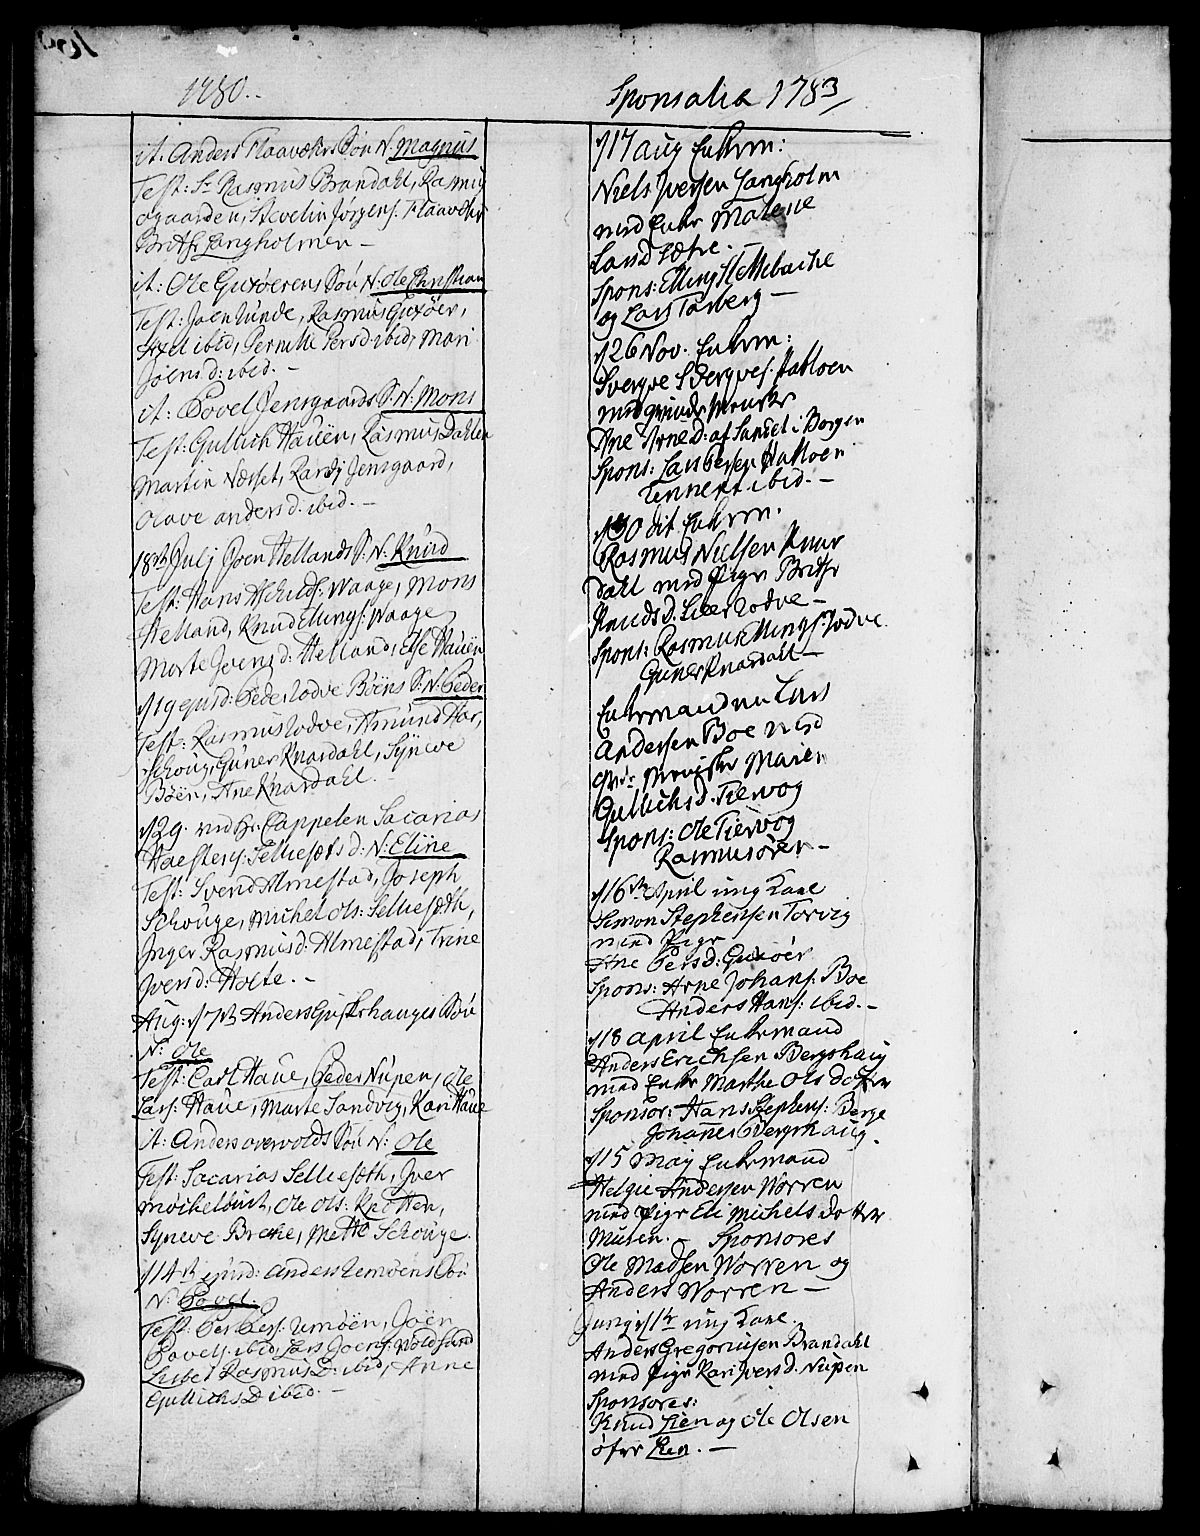 1780..
it: Anders Flaavæhrs Søn N: Magnus
Test: Sr Rasmus Brandahl, Rasmus
ogaarden, Sevelin Jørgens: Flaavæhr
Brithe Langholmen –
it: Ole Guxøerens Søn N: Ole Christian
Test: Joen Runde, Rasmus Guxøer,
Axel ibid, Pernille Persd: ibid, Mari
Joensd: ibid. –
it: Povel Jensgaards S: N: Mons
Test: Gullich Hauen, Rasmus Dahlen
Martin Næsset, Randi Jensgaard,
Olave andersd: ibid. –
18de Julj Joen Hellands S: N: Knud
Test: Hans Waage, Mons
Helland, Knud Ellings: Waage
Marte Joensd: Helland, Else Hauen
d 19 ejusd: Peder Rødve Böens S: N: Peder
Test: Rasmus Rødve, Amund Har,
schoug, Guner Knardahl, Syneve
Böen, Ane Knardahl. –
d 29. ved Hr. Cappelen Sacarias
Selliesøts d: N: Eline
Test: Svend Almestad, Joseph
Schouge, Michel Ols: Selliesøth,
Inger Rasmusd: Almestad, Trine
Iversd: Holte. –
Aug: d 7de Anders Søn
N: Ole
Test: Carl Haue, Peder Nupen, Ole
Lars: Haue, Marte Sandvig, Kari Haue
it: Anders overvolds Søn N: Ole
Test: Sacarias Selliesøth, Iver
Møchelbust, Ole Ols: Knotten,
Syneve Breche, Mette Schouge.
d 14de ejusd: Anders Remöens Søn
N: Povel.
Test: Per Pers: Remöen, Joen
Povels: ibid, Lars Joens: Voldsund
Lisbet Rasmus D: ibid, Anne
Gullichs D ibid. –
Sponsalia 1783
d 17 aug Enkem:
Niels Iversen Langholm
med Enke Malene
Landsætre.
Spons: Elling Hellebache
og Lars Torberg –
d 26 Nov. Enkem:
Sverqve Sverqves: Hatløen
med qvinde Menske
Ane Arne D: af Sandet i Borgen
Spons: Lars Persen Hatløen
ibid. –
d 30 dit Enkem.
Rasmus Nielsen Knar
dahl med Pige Brithe
Knuds D. Rødve –
Spons: Rasmus Ellings: Rødve
Guner Knardahl –
Enkemanden Lars
Andersen Boe med
Qvi: Menniske Maren
Gullichs d. Tiervog
Spons: Ole Tiervog
Rasmus ören –
d 16de April ung Karl
Simon Stephensen Torvig
med Pige
Ane Pers D: Guxøer
Spons: Arne Johans: Boe
Anders Hans: ibid. –
d 18 April Enkemand
Anders Erichsen Bergshaug
med Enke Marthe Ols dotter
Sponsor: Hans Stephens: Berge
Johannes Bergshaug.
d 15 May Enkemand
Helgie Andersen Worren
med Pige Eli Michels dotter
Muren. – Sponsores
Ole Madsen Worren og
Anders Worren –
Junij d 1te ung Karl.
Anders Gregoriusen Brandahl
med Pige Kari Ivers D. Nupen
Sponsores:
Knud Lien og Ole Olsen
öfre Lien. –